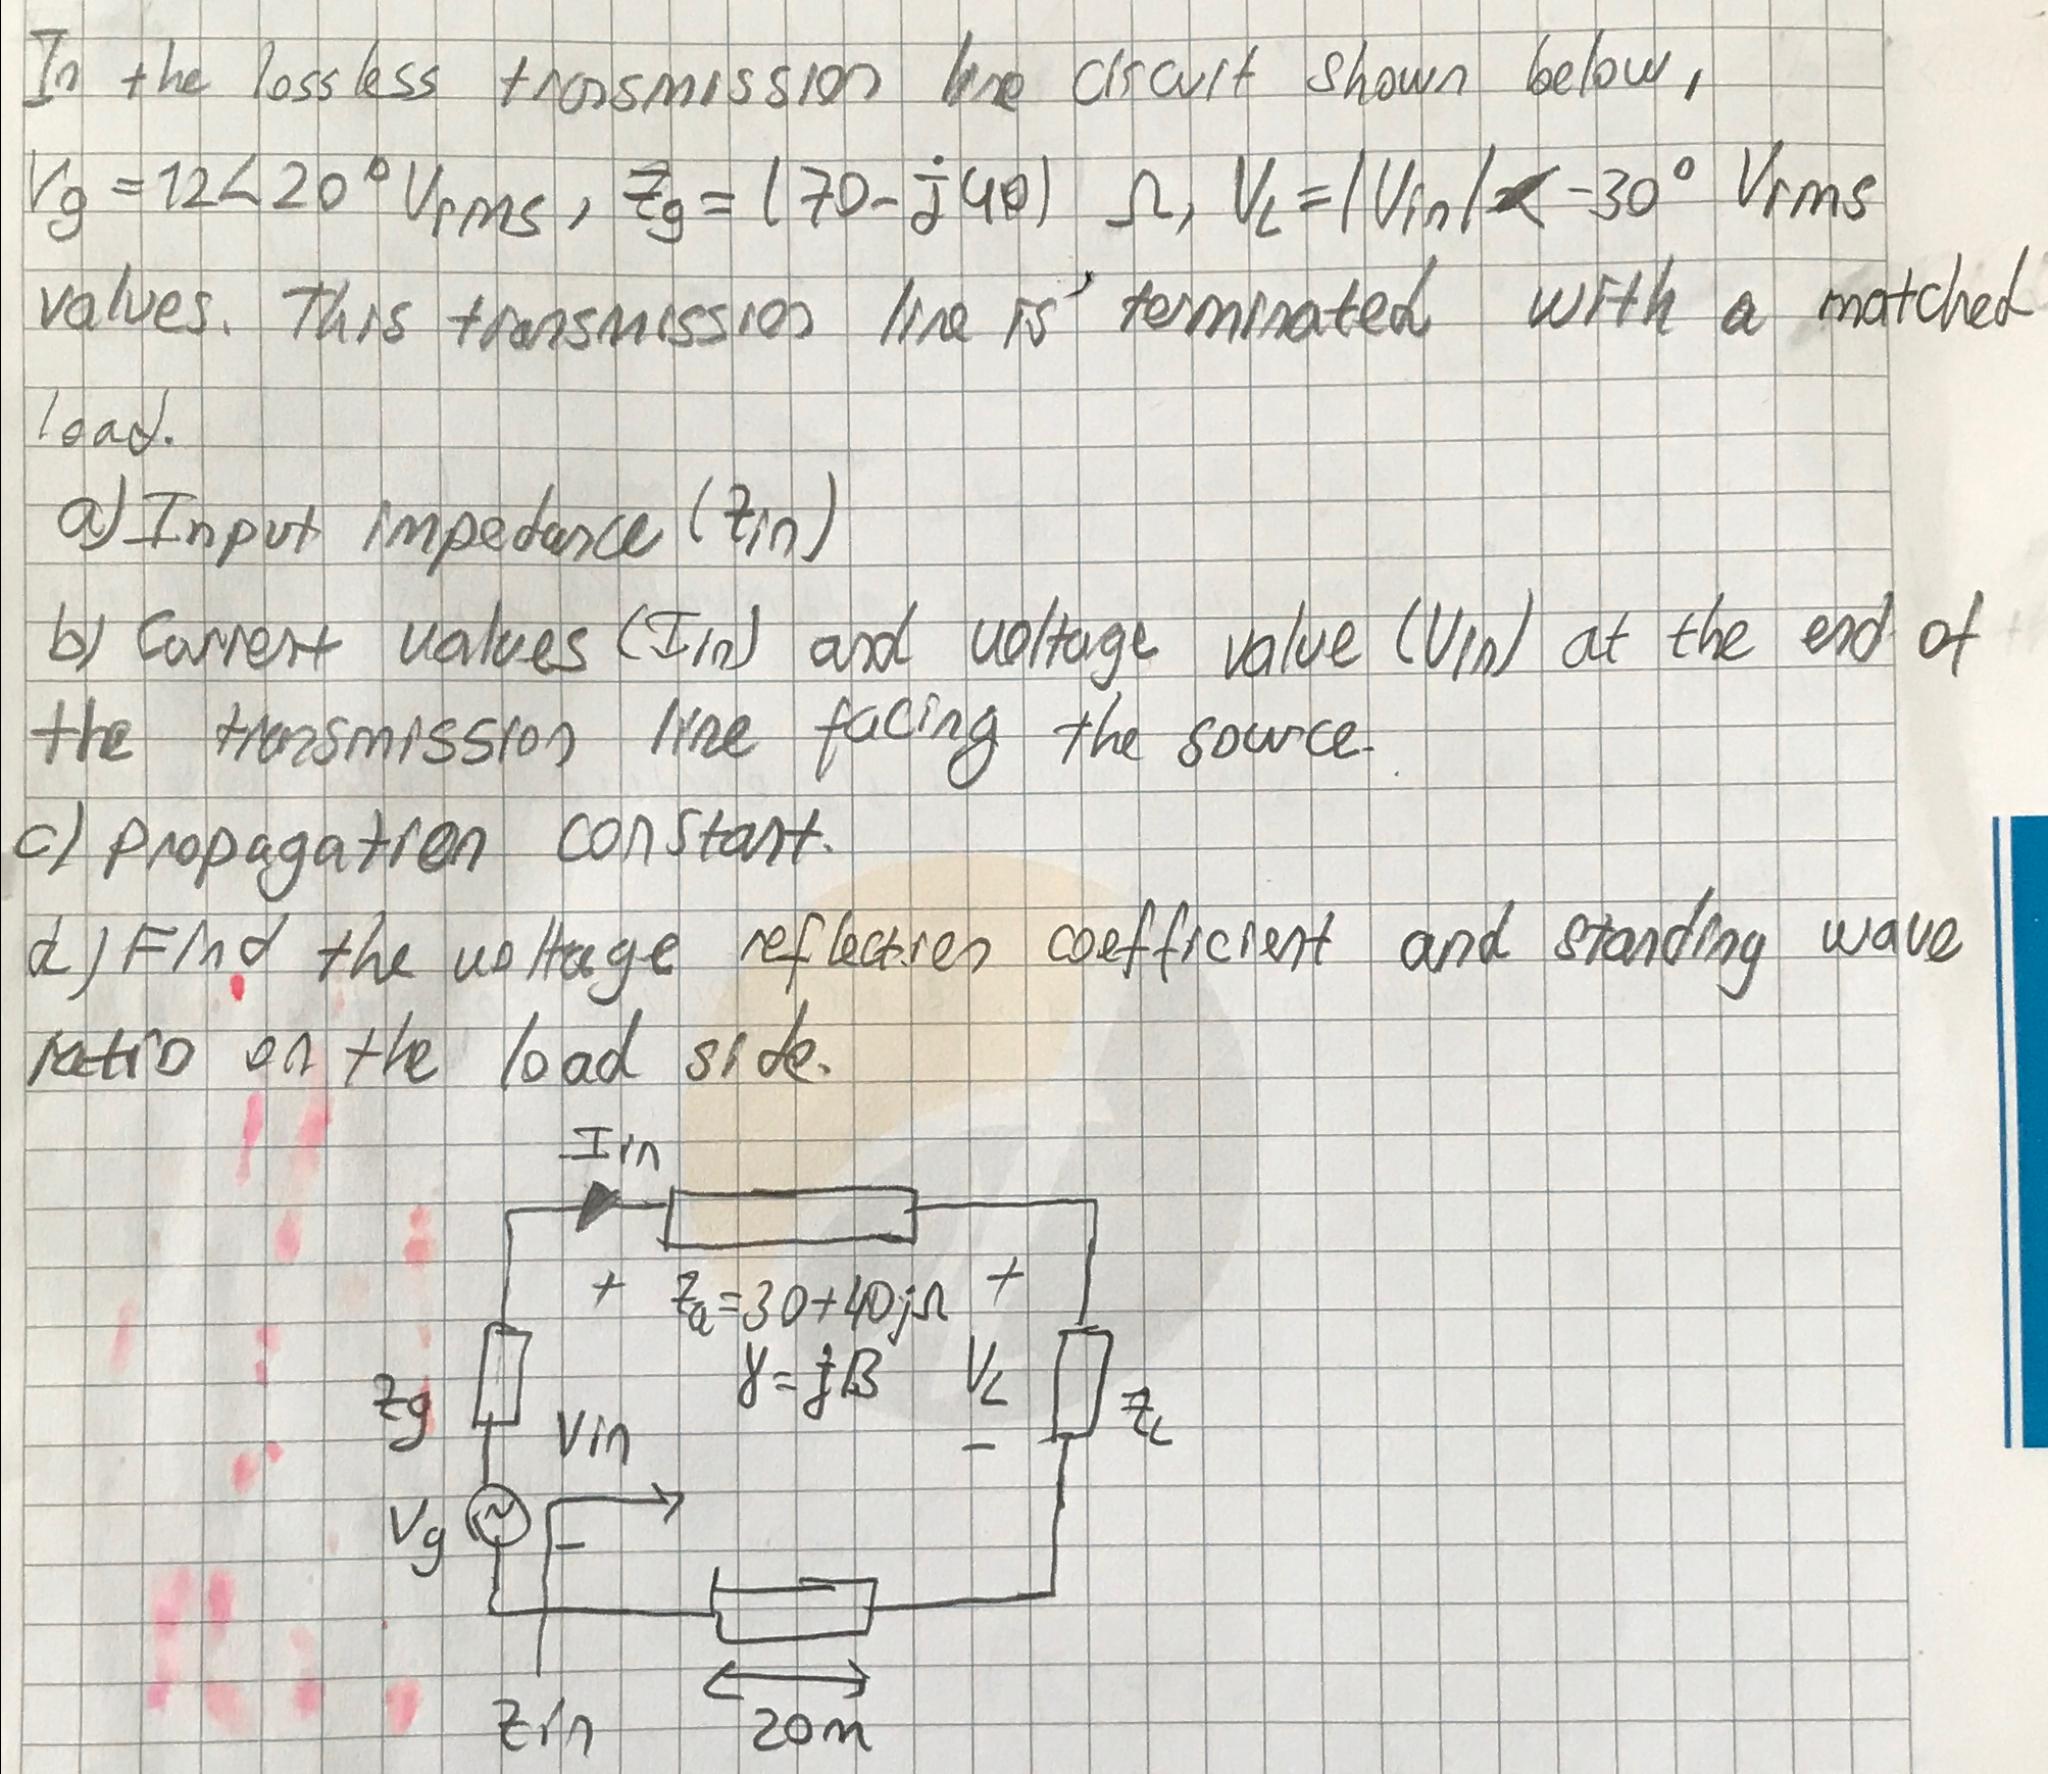 In the lossless transmission line circuit shown below,
Vg = 12∠20° Vrms, Zg = (70-j40) Ω, VL = |Vin|∠-30° Vrms
values. This transmission line is terminated with a matched
load.
a) Input impedance (Zin)
b) Current values (Iin) and voltage value (Vin) at the end of
the transmission line facing the source.
c) propagation constant.
d) Find the voltage reflection coefficient and standing wave
ratio on the load side.
Iin
+ Za=30+40jΩ +
γ=jβ
Zg Vin VL - ZL
Vg -
Zin 20m